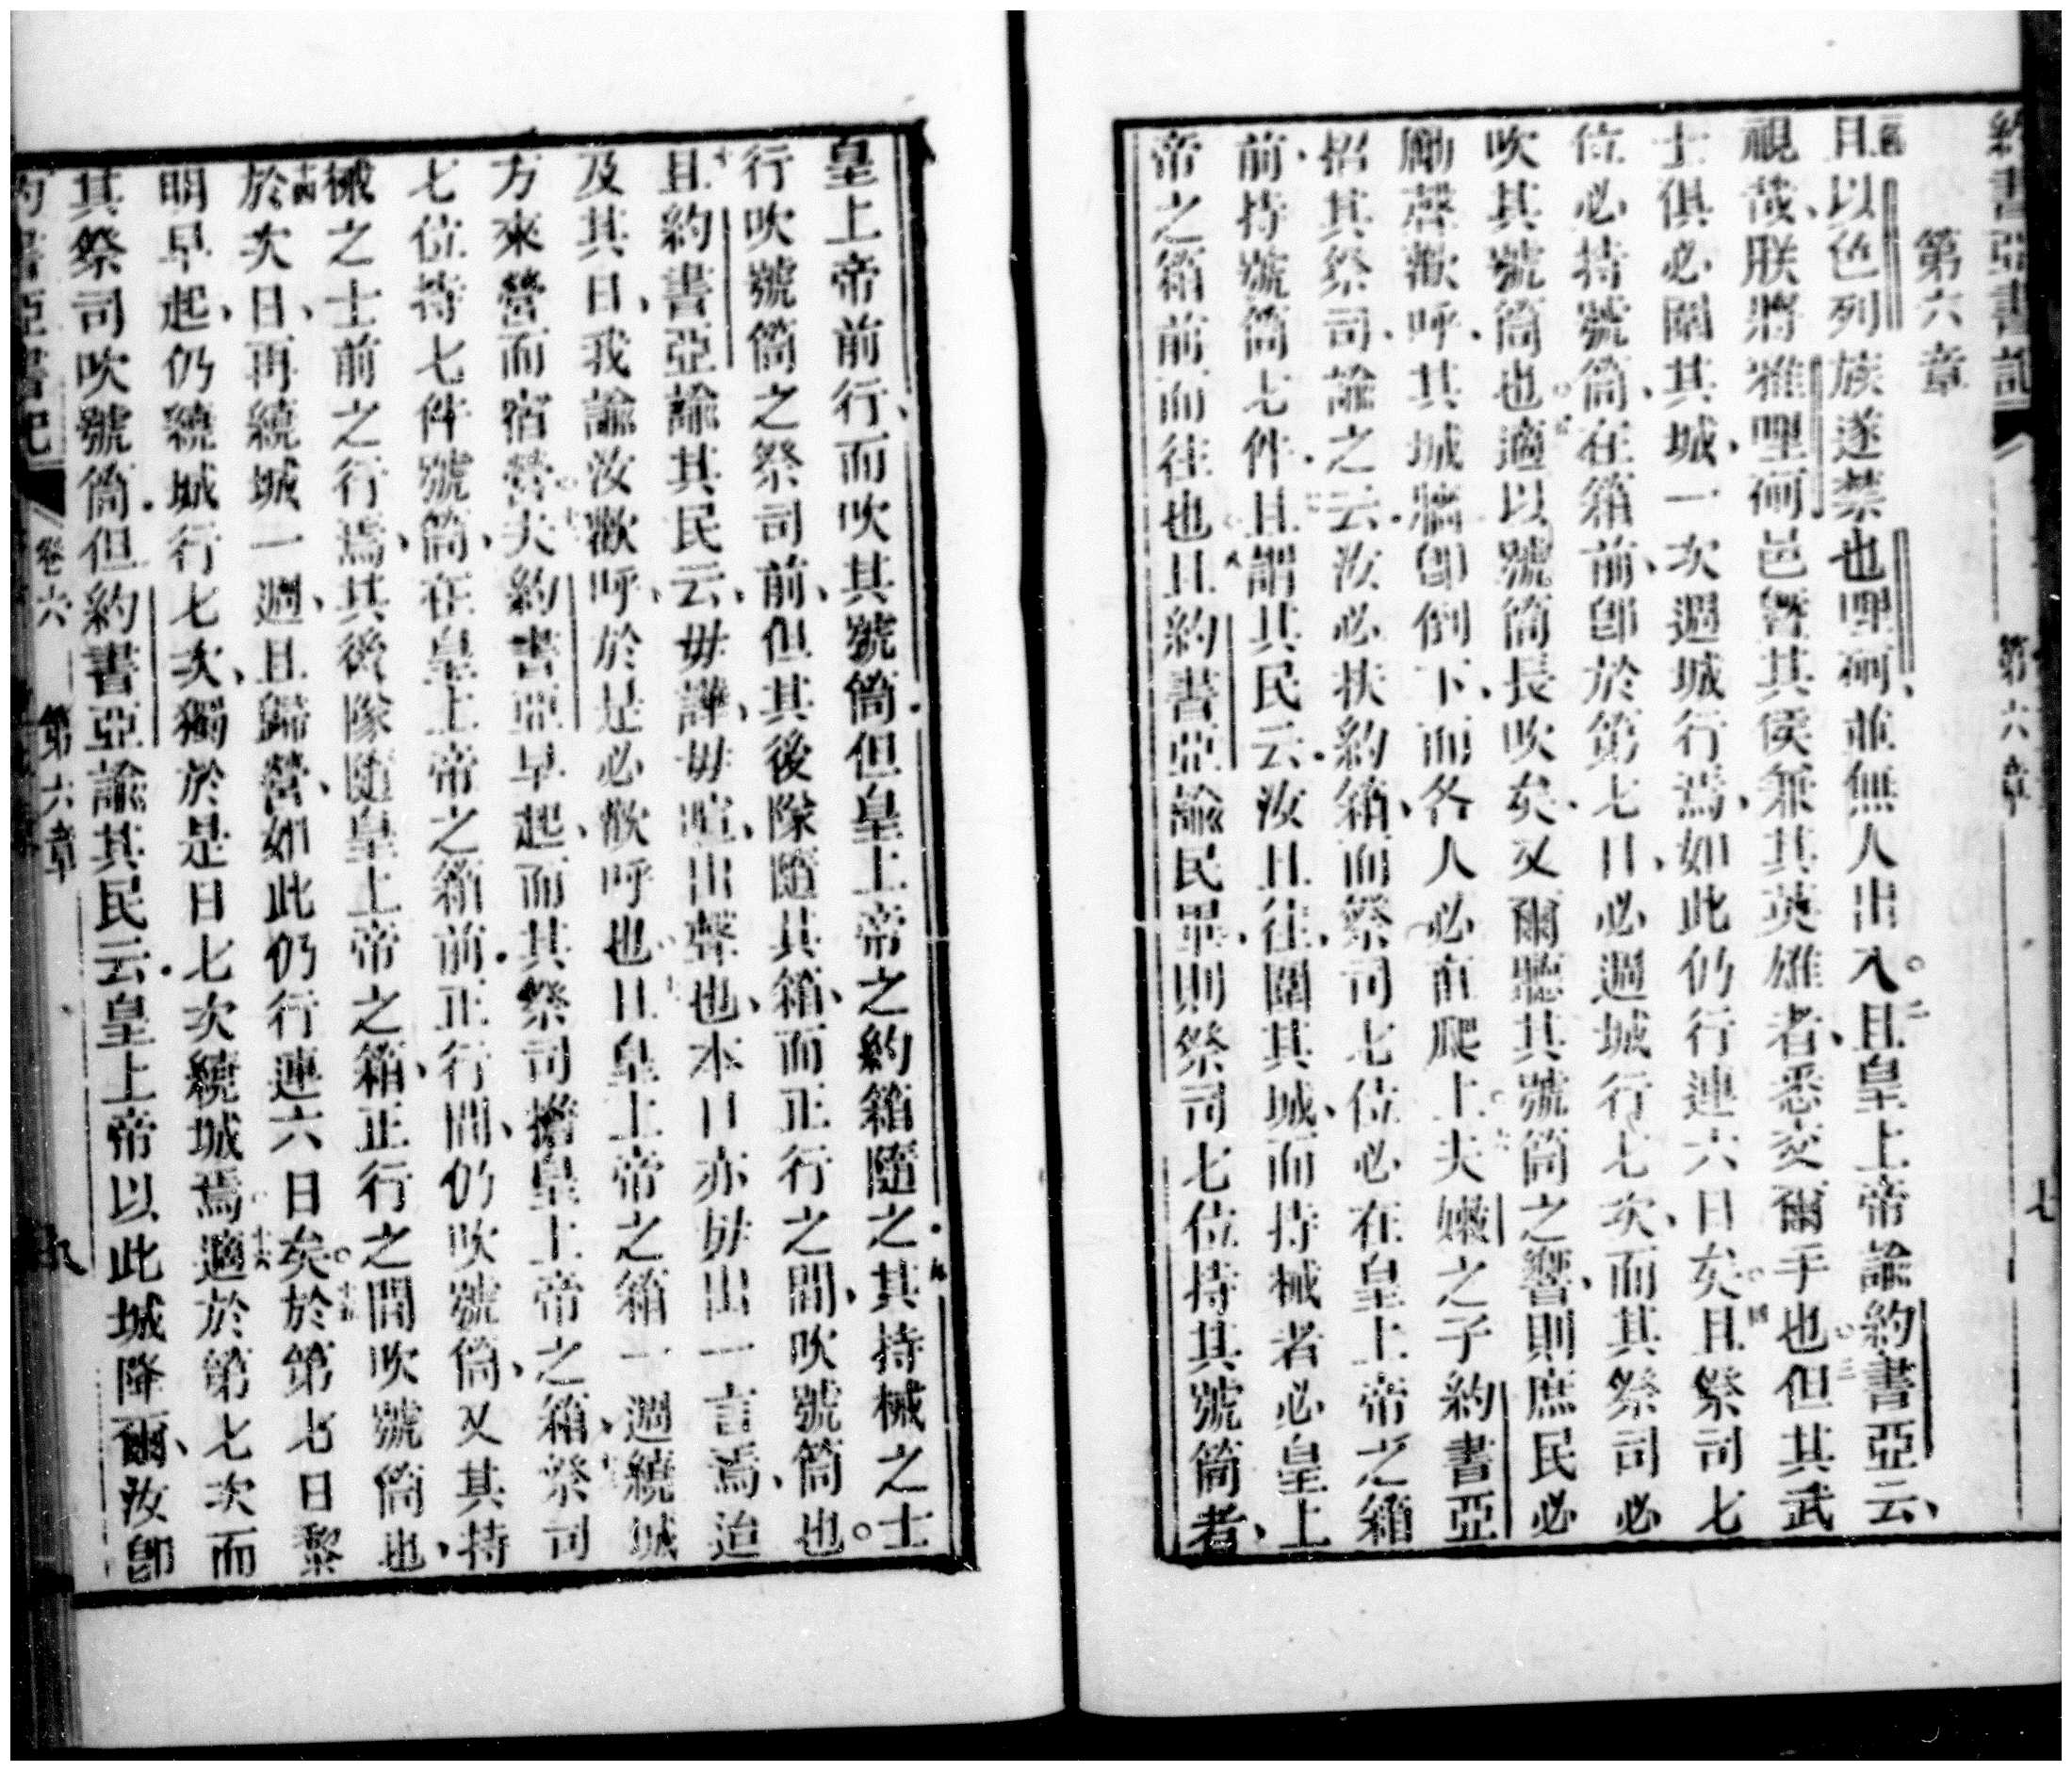 約書亞書記 第六章 七
第六章
且以色列族遂禁也哩砢、並無人出入。二且皇上帝諭約書亞云、
視哉、朕將雅哩砢邑曁其侯兼其英雄者、悉交爾手也。三但其武
士俱必圍其城、一次週城行焉、如此仍行連六日矣。四且祭司七
位必持號筒、在箱前、卽於第七日、必週城行七次、而其祭司必
吹其號筒也。五適以號筒長吹矣、又爾聽其號筒之響、則庶民必
勵聲歡呼、其城牆卽倒下、而各人必直爬上。六夫嫩之子約書亞
招其祭司、諭之云、汝必扶約箱、而祭司七位必在皇上帝之箱
前、持號筒七件。七且謂其民云、汝且往、圍其城、而持械者必皇上
帝之箱前而往也。八且約書亞諭民畢、則祭司七位持其號筒者、
皇上帝前行、而吹其號筒、但皇上帝之約箱隨之。九其持械之士
行吹號筒之祭司前、但其後隊隨其箱、而正行之間、吹號筒也。
十且約書亞諭其民云、毋譁、毋喧、出聲也、本日亦毋出一言焉、迨
及其日、我諭汝歡呼、於是必歡呼也。十一且皇上帝之箱一週繞城
方來營而宿營。十二夫約書亞早起、而其祭司擔皇上帝之箱、十三祭司
七位持七件號筒、在皇上帝之箱前、正行間、仍吹號筒、又其持
械之士前之行焉、其後隊隨皇上帝之箱、正行之間吹號筒也、
十四於次日、再繞城一週、且歸營、如此仍行連六日矣。十五於第七日黎
明早起、仍繞城行七次、獨於是日七次繞城焉。十六適於第七次而
其祭司吹號筒、但約書亞諭其民云、皇上帝以此城降爾、汝卽
約書亞書記 卷六 第六章 八